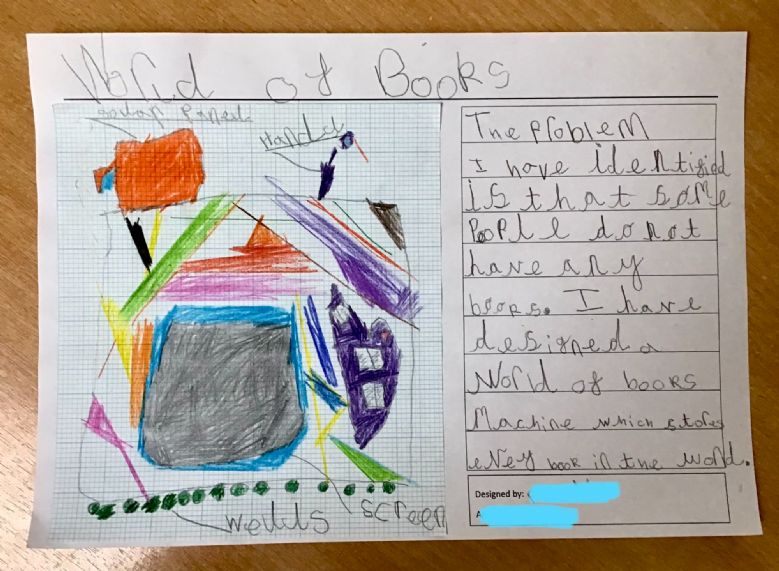 World of Books
solar Panel
Handle
wells
screen
The Problem
I have identified
is that some
People do not
have any
books. I have
designed a
World of books
Machine which stores
evey book in the world.
Designed by:
A